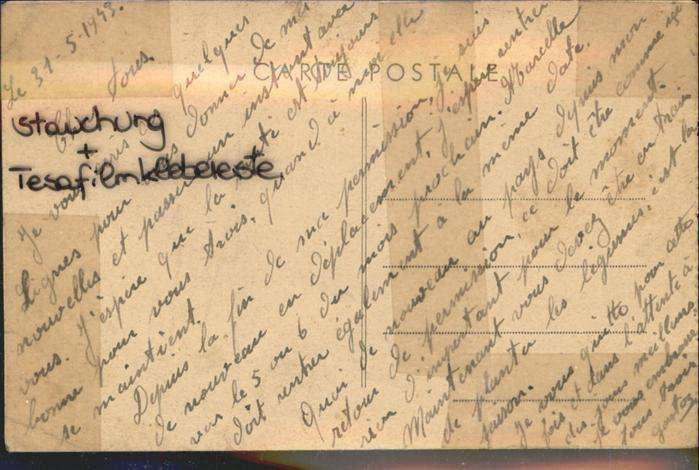 Le 31-5-1943.
tous.
CARTE POSTALE
Stauchung
+
Tesafilmklebereste
Je vous quelques
lignes pour vous donner de mes
nouvelles et passer un instant avec
vous. J'espère que la santé est toujours
bonne pour vous trois, quand à moi elle
se maintient.
Depuis la fin de ma permission, je suis
de nouveau en déplacement, j'espère rentrer
vers le 5 ou 6 du mois prochain. Marcelle
doit rentrer également à la même date.
Quoi de nouveau au pays depuis mon
retour de permission, ce doit être comme
rien d'important pour le moment.
Maintenant vous devez être en train
de planter les légumes, c'est la
saison.
Je vous quitte pour cette
fois et dans l'attente
des jours meilleurs
je vous embrasse
tous